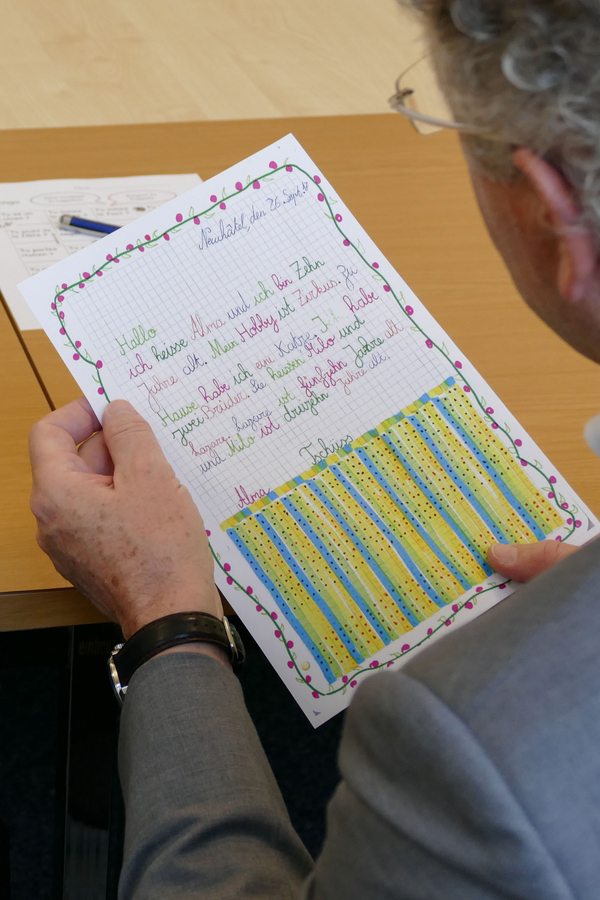 Neuhâtel, den 26. Sept.
Hallo
ich heisse Alma und ich bin Zehn
Jahre alt. Mein Hobby ist Zirkus. Zu
Hause habe ich eine Katze. Ich habe
zwei Brüder. Sie heissen Milo und
lazare. lazare ist fünfzehn Jahre alt
und Milo ist dreizehn Jahre alt.
Tschüss
Alma